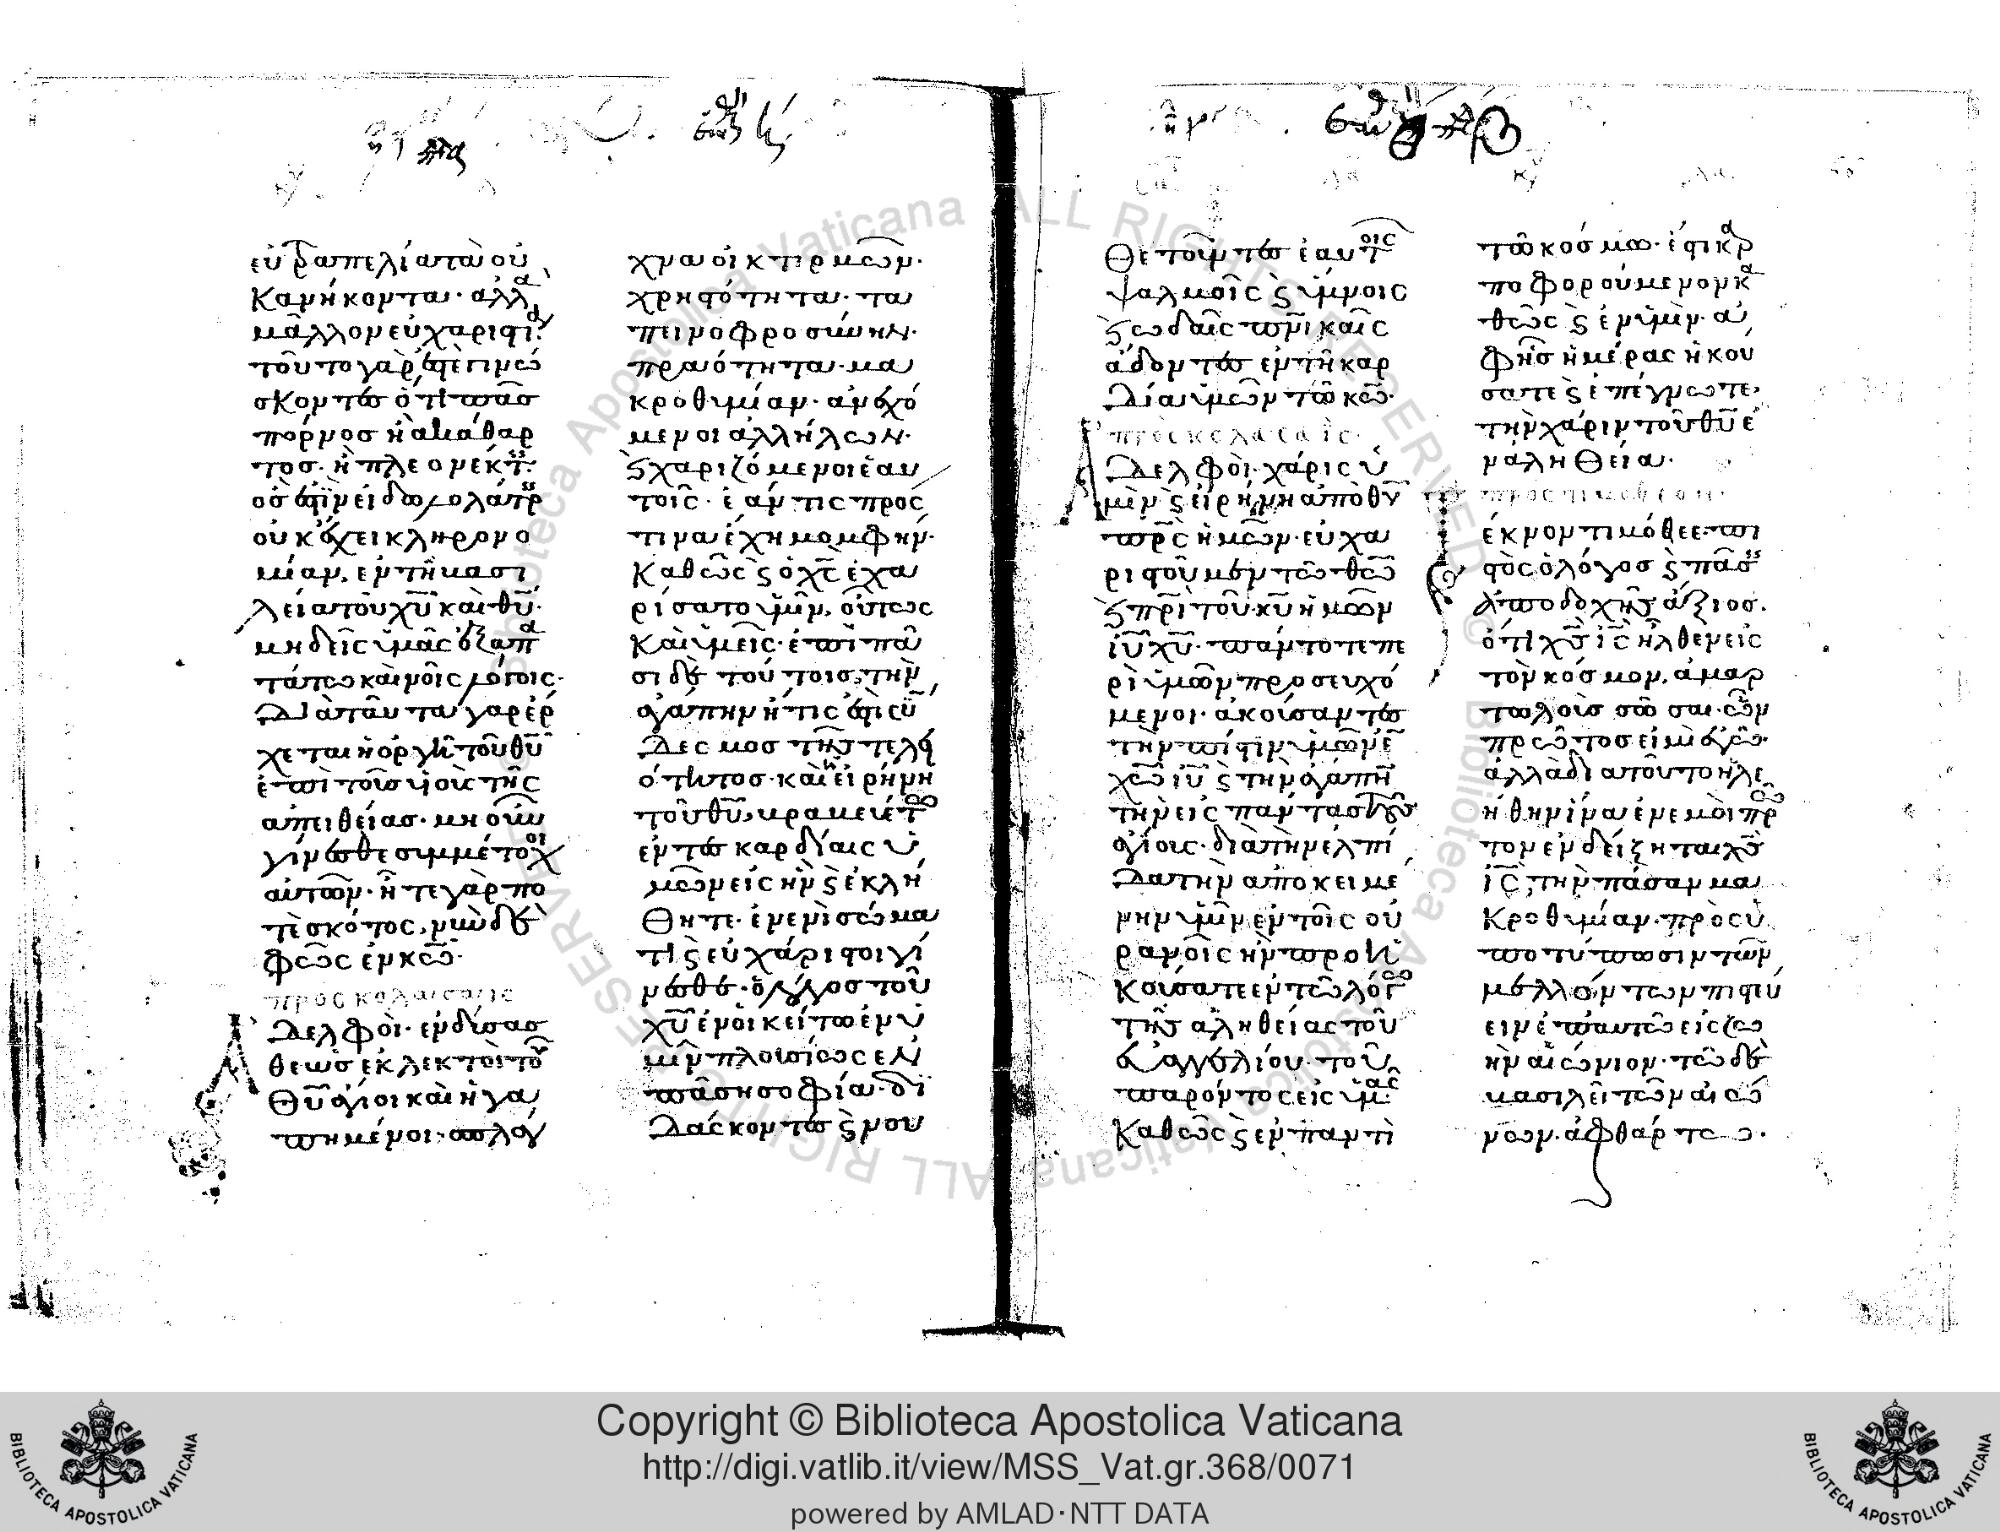 εὐτραπελία τὰ οὐ
κ ἀνήκοντα· ἀλλὰ
μᾶλλον εὐχαριστία·
τοῦτο γὰρ ἐστὲ γινώ
σκοντες ὅτι πᾶσ
πόρνοσ ἢ ἀκάθαρ
τοσ· ἢ πλεονέκτης·
ὅσ ἐστιν εἰδωλολάτρης
οὐκ ἔχει κληρονο
μίαν, ἐν τῆ βασι
λεία τοῦ χυ καὶ θυ·
μηδεὶς ὑμᾶς ἐξαπα
τάτω κενοῖς λόγοις·
διὰ ταῦτα γὰρ ἔρ
χεται ἡ ὀργὴ τοῦ θυ
ἐπὶ τοὺσ υἱοὺς τῆς
ἀπειθείασ· μὴ οὖν
γίνεσθε συμμέτοχοι
αὐτῶν· ἦτε γὰρ πο
τὲ σκότος, νῦν δὲ
φῶς ἐν κω·
πρὸς κολασαεῖς
Ἀδελφοὶ· ἐνδύσασ
θε ὡς ἐκλεκτοὶ τοῦ
θυ ἅγιοι καὶ ἠγα
πημένοι· σπλάγ
χνα οἰκτιρμῶν·
χρηστότητα· τα
πεινοφροσύνην·
πραότητα· μα
κροθυμίαν· ἀνεχό
μενοι ἀλλήλων·
ϗ χαριζόμενοι ἑαυ
τοῖς· ἐάν τις πρός
τινα ἔχη μομφήν·
καθὼς ϗ ὁ χς ἐχα
ρίσατο ὑμῖν, οὕτως
καὶ ὑμεῖς· ἐπὶ πᾶ
σι δὲ τούτοισ, τὴν
ἀγάπην ἥτις ἐστὶ σύν
δεσμοσ τῆς τελει
ότητοσ· καὶ ἡ εἰρήνη
τοῦ θυ, βραβευέτω
ἐν ταῖς καρδίαις ὑ
μῶν εἰς ἣν ϗ ἐκλή
θητε· ἐν ἑνὶ σώμα
τι ϗ εὐχάριστοι γί
νεσθε· ὁ λόγος τοῦ
χυ ἐνοικείτω ἐν ὑ
μῖν πλουσίως ἐν
πάση σοφία· δι
δάσκοντες ϗ νου
θετοῦντες ἑαυτοῖς
ψαλμοῖς ϗ ὕμνοις
ϗ ὠδαῖς πνικαῖς
ἄδοντες ἐν τῆ καρ
δία ὑμῶν τῶ κω·
πρὸς κολασαεῖς·
Ἀδελφοὶ· χάρις ὑ
μῖν ϗ εἰρήνη ἀπὸ θυ
πρς ἡμῶν· εὐχα
ριστοῦμεν τῶ θεῶ
ϗ πρὶ τοῦ κυ ἡμῶν
ιυ χυ· πάντοτε πε
ρὶ ὑμῶν προσευχό
μενοι· ἀκούσαντες
τὴν πίστιν ὑμῶν ἐν
χω ιυ ϗ τὴν ἀγάπην
τὴν εἰς πάντας τοὺς
ἁγίοις· διὰ τὴν ἐλπί
δα τὴν ἀποκειμέ
νην ὑμῖν ἐν τοῖς οὐ
ρανοῖς ἣν προη
κούσατε ἐν τῶ λόγω
τῆς ἀληθείας τοῦ
εὐαγγελίου· τοῦ
παρόντος εἰς ὑμᾶς·
καθὼς ϗ ἐν παντὶ
τῶ κόσμω· ἐστι καρ
ποφορούμενον κα
θὼς ϗ ἐν ὑμῖν· ἀ
φ' ῆς ἡμέρας ἠκού
σατε ϗ ἐπέγνωτε·
τὴν χάριν τοῦ θυ ἐ
ν ἀληθεία·
πρὸς τιμόθεον·
Τέκνον τιμόθεε· πι
στὸς ὁ λόγοσ ϗ πάσης
ἀποδοχῆς ἄξιοσ.
ὅτι χς ις ἦλθεν εἰς
τὸν κόσμον, ἁμαρ
τωλοὺς σῶσαι· ὧν
πρῶτοσ εἰμὶ ἐγῶ·
ἀλλὰ διὰ τοῦτο ἠλε
ήθην ἵνα ἐν ἐμοὶ πρω
τον ἐνδείξηται χς
ις, τὴν πᾶσαν μα
κροθυμίαν· πρὸς ὑ
ποτύπωσιν τῶν
μελλόντων πιστεύ
ειν ἐπ' αυτῶ εἰς ζω
ὴν αἰώνιον· τῶ δὲ
βασιλεῖ τῶν αἰώ
νων· ἀφθάρτω·
Vaticana ALL RIGHTS RESERVED © Biblioteca Apostolica Vaticana ALL RIGHTS RESERVED © Biblioteca Apostolica
Copyright © Biblioteca Apostolica Vaticana
http://digi.vatlib.it/view/MSS_Vat.gr.368/0071
powered by AMLAD·NTT DATA
BIBLIOTECA APOSTOLICA VATICANA
BIBLIOTECA APOSTOLICA VATICANA